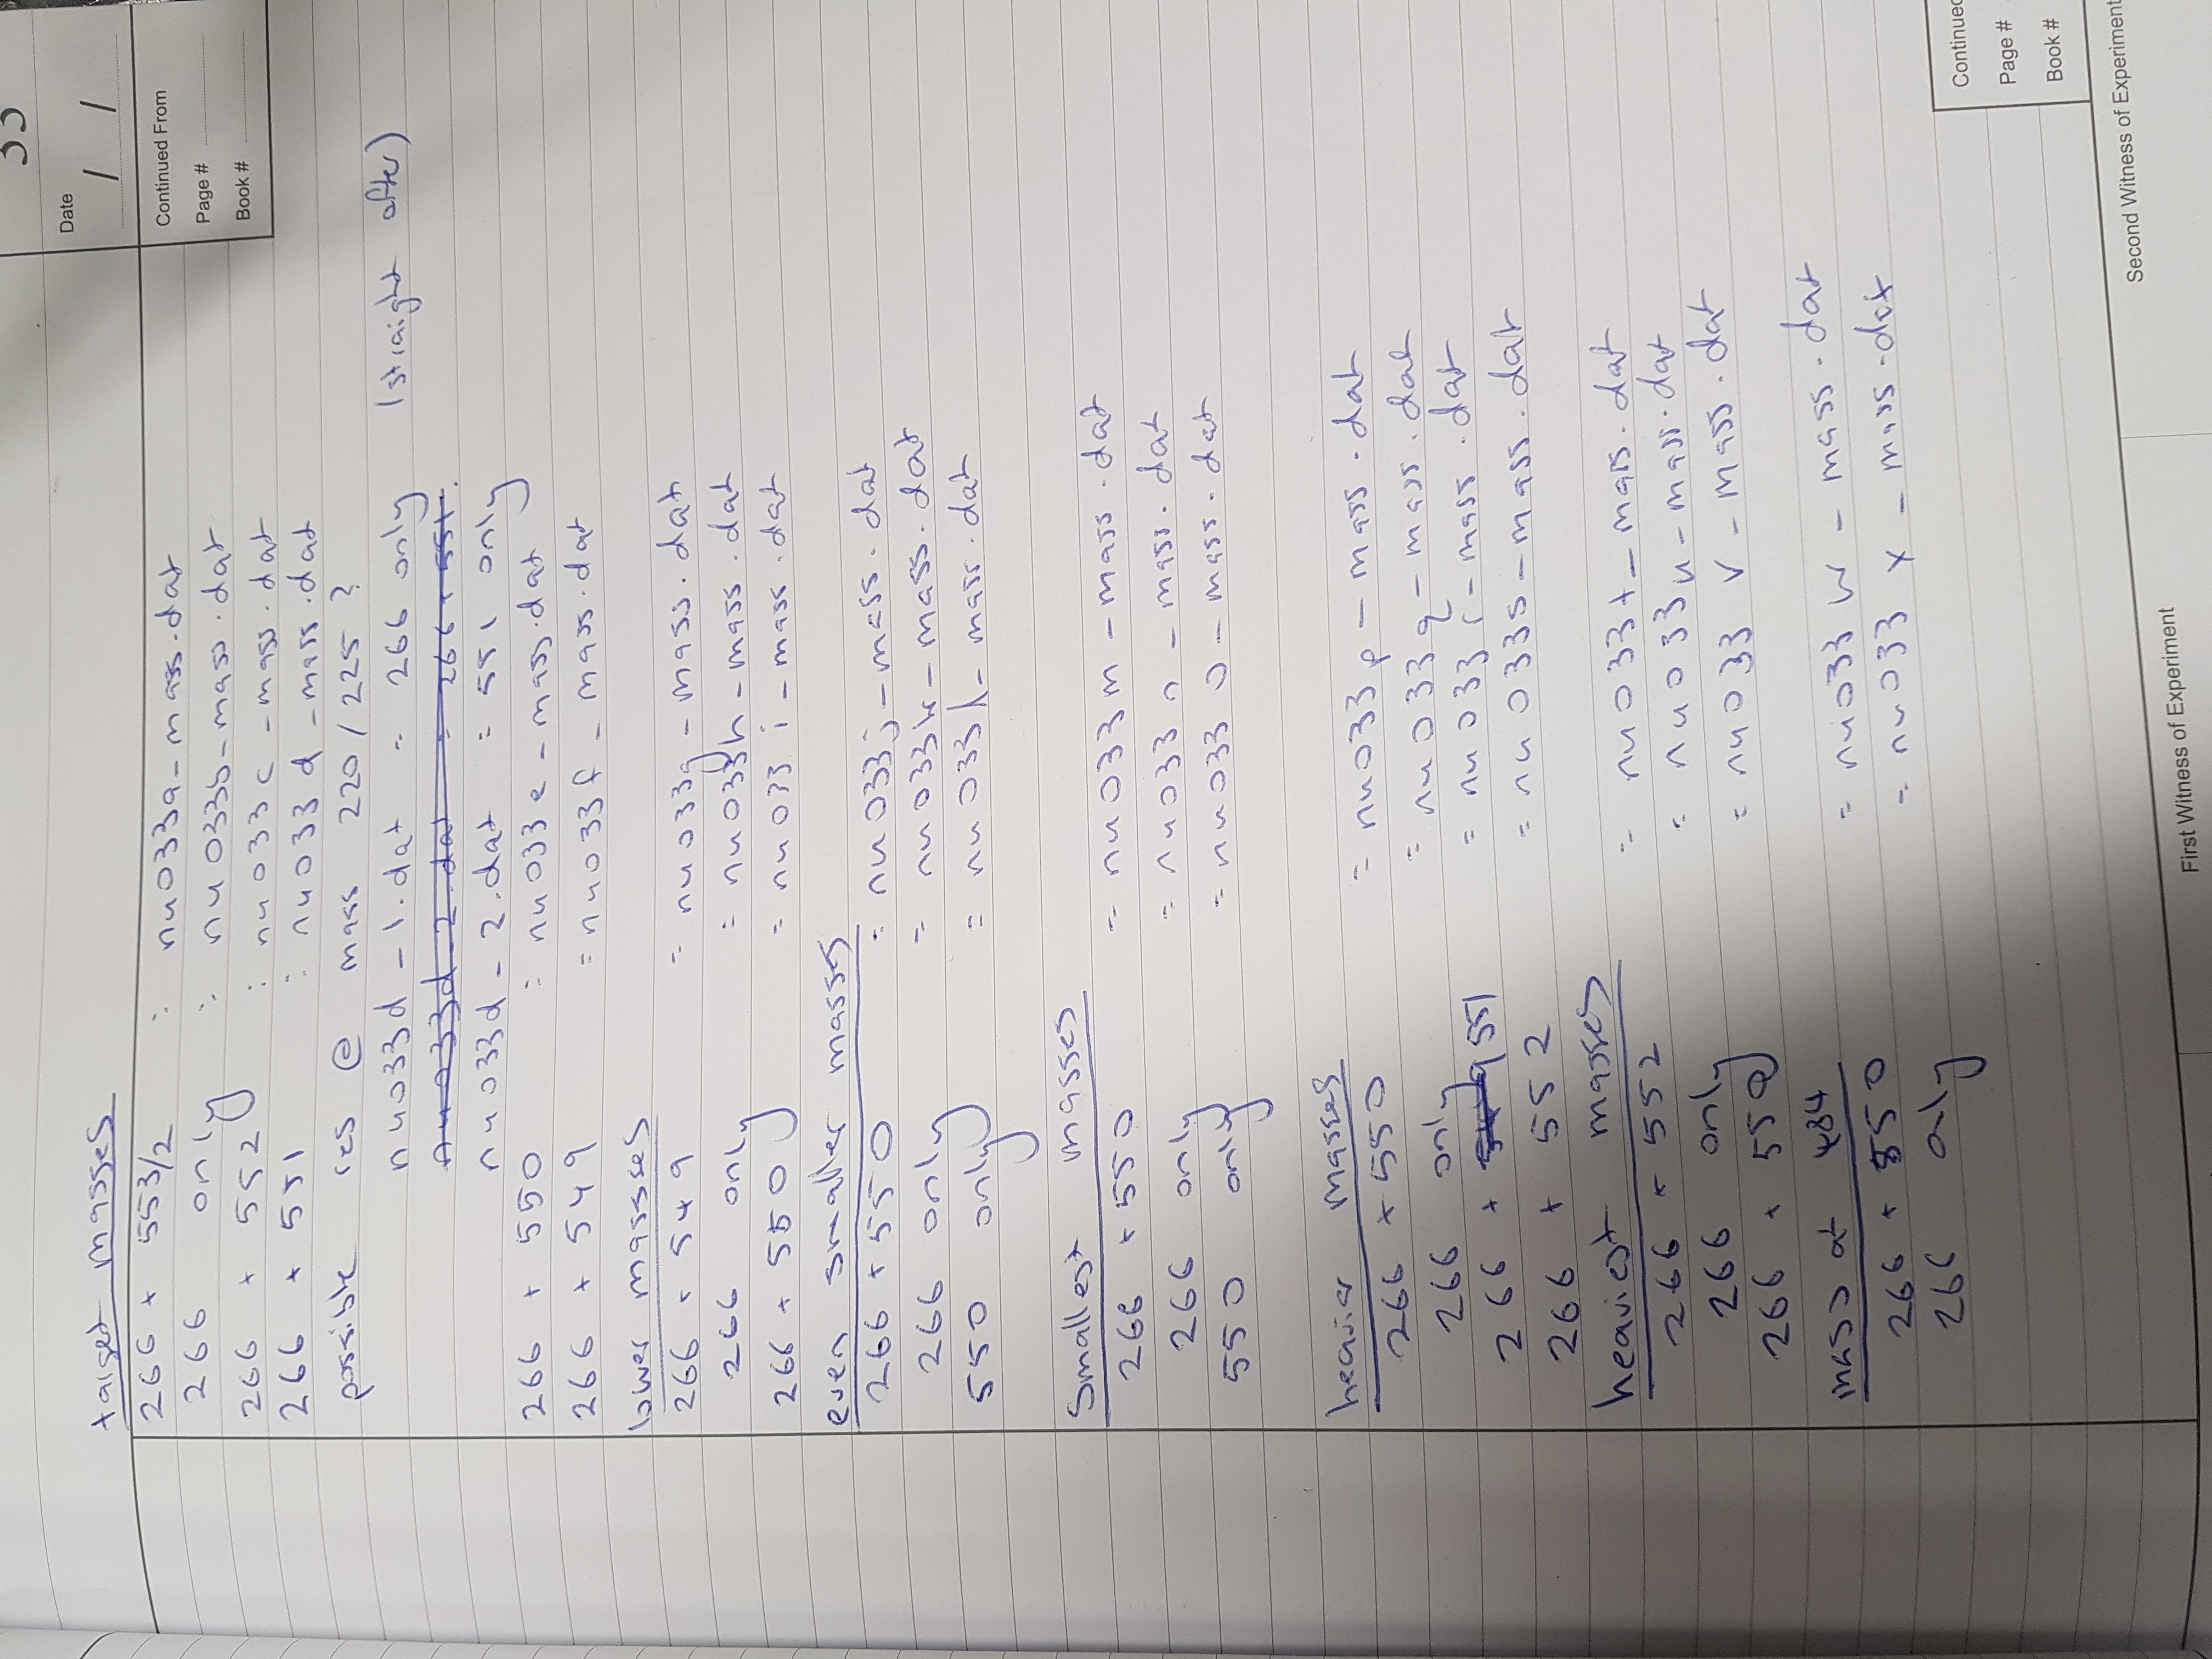 33
Date
/ /
Continued From
Page #
Book #
target masses
266 + 553/2 : nu033a-mass.dat
266 only : nu033b-mass.dat
266 + 552 : nu033c-mass.dat
266 + 551 : nu033d-mass.dat
possible res @ mass 220/225 ?
nu033d-1.dat = 266 only (straight after)
nu033d-2.dat = 266+551.
nu033d-2.dat = 551 only
266 + 550 = nu033e-mass.dat
266 + 549 = nu033f-mass.dat
lower massses
266 + 549 = nu033g-mass.dat
266 only = nu033h-mass.dat
266 + 550 = nu033i-mass.dat
even smaller masses
266 + 550 = nu033j-mass.dat
266 only = nu033k-mass.dat
550 only = nu033l-mass.dat
Smallest masses
266 + 550 = nu033m-mass.dat
266 only = nu033n-mass.dat
550 only = nu033o-mass.dat
heavier masses
266 + 550 = nu033p-mass.dat
266 only = nu033q-mass.dat
266 + 551 = nu033r-mass.dat
266 + 552 = nu033s-mass.dat
heaviest masses
266 + 552 = nu033t-mass.dat
266 only = nu033u-mass.dat
266 + 550 = nu033v-mass.dat
mass at 484
266 + 550 = nu033w-mass.dat
266 only = nu033x-mass.dat
Continued
Page #
Book #
First Witness of Experiment
Second Witness of Experiment